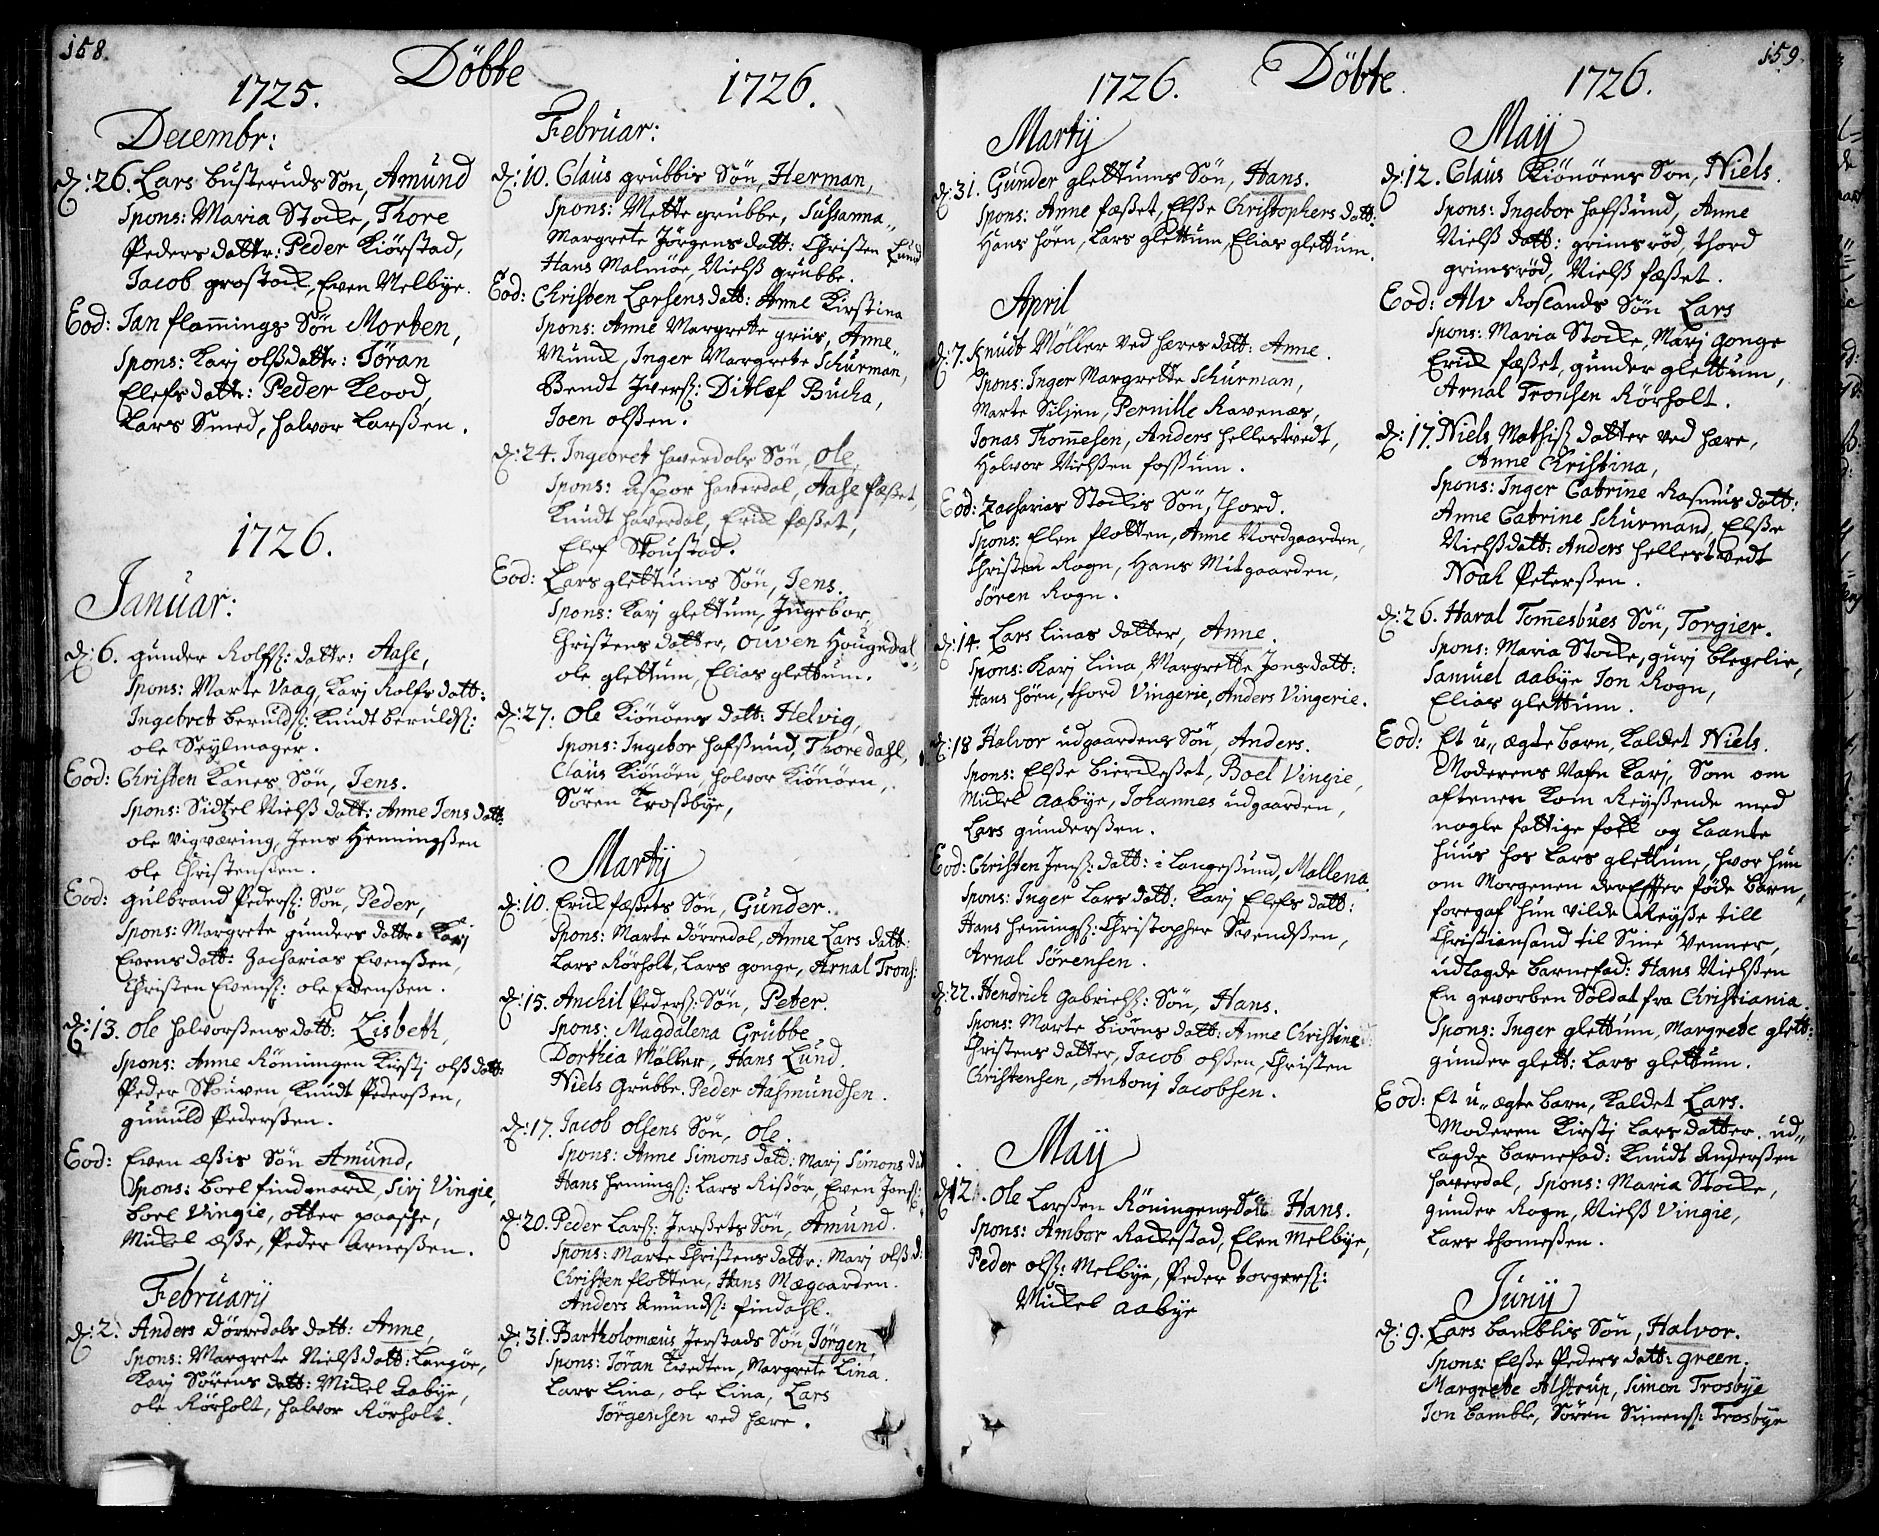 158.
Döbte
1725.
Decembr:
D: 26. Lars Busteruds Søn, Amund
Spons: Maria Stocke, Thore
Peders dattr: Peder Kiørstad,
Jacob grostock, Even Melbye.
Eod: Jan flammings Søn Morten,
Spons: Karj olsdattr: Jöran
Elefs dattr: Peder Klood,
Lars Smed, Halvor Larßen.
1726.
Januar:
D: 6. gunder Rolfs: dattr: Aase,
Spons: Marte Vaag, Karj Rolfs datt:
Ingebret beruldß: Knudt beruldß:
ole Seylmager.
Eod: Christen Kanes Søn, Jens.
Spons: Sidtzel Nielß datt: Anne Jens datt:
ole Vigværing, Jens Henningßen
ole Christensen.
Eod: gulbrand Pederß: Søn, Peder,
Spons: Margrete gunders dattr: Karj
Evens datt: Zacharias Evenßen,
Christen Evenß: ole Evenßen.
D: 13. ole Halvorßens datt: Lisbeth,
Spons: Anne Röningen Kirstj olß datt:
Peder Skouven, Knudt Pederßen,
gunuld Pederßen.
Eod: Even æßis Søn Amund,
Spons: boel findmarck, Sirj Vingie,
boel Vingie, otter paasche,
Mickel æße, Peder Arneßen.
Februarij
D: 2. Anders dörredals datt: Anne,
Spons: Margrete Nielß datt: Langöe,
Karj Sørens datt: Mickel Aabye,
ole Rörholt, halvor Rörholt.
1726.
Februar:
D: 10. Claus grubbis Søn, Herman,
Spons: Mette grubbe, Sussanna,,
Margrete Jörgens datt: Christen Lund
Hans Malmöe, Nielß grubbe.
Eod: Christen Larsens datt: Anne Kirstina
Spons: Anne Margrete griis, Anne,,
Munck, Inger Margrete Schurman,
Bendt Iverß: Ditlef Bucka,
Joen olßen.
D: 24. Ingebret haverdals Søn, ole,
Spons: Aspor haverdal, Aase fæßet,
Knudt haverdal, Erick fæßet,
Elef Skoustad.
Eod: Lars glettums Søn, Jens.
Spons: Karj glettum, Ingebor,,
Christens datter, ouven Hougedal,,
ole glettum, Elias glettum.
D: 27. Ole Kiönöens datt: Helvig,
Spons: Ingebor hafßund, Thore dahl,
Claus Kiönöen, halvor Kiönöen,
Sören Troßbye,
Martij
D: 10. Erick fæßets Søn, Gunder.
Spons: Marte dörredal, Anne Lars datt:
Lars Rörholt, Lars gonge, Arnal Tronß:
D: 15. Anchil Pederß: Søn, Peter.
Spons: Magdalena Grubbe
Dorthia Möller, Hans Lund.
Niels Grubbe. Peder Aasmundsen.
D: 17. Jacob olsens Søn, ole.
Spons: Anne Simons datt: Marj Simons datt
Hans Hemingß: Lars Rißör, Even Jonß:
D: 20. Peder Larß: Jerßets Søn, Amund.
Spons: Marte Christens dattr: Marj olß d:
Christen flotten, Hans Mægaarden.
Anders Amundß: findahl.
D: 31. Bartholomæus Jerstads Søn Jörgen,
Spons: Jöran Tvedten, Margrete Lina.
Lars Lina, ole Lina, Lars
Jörgensen ved hære.
159.
Döbte.
1726.
Martij
D: 31. Gunder glettums Søn, Hans.
Spons: Anne fæßet, Elße Christophers datt:
Hans höen, Lars glettum, Elias glettum.
April
D: 7. Knudt Möller ved hæres datt: Anne.
Spons: Inger Margrette Schurman,
Marte Siljen, Pernille Ravenæs,
Jonas Thommesen, Anders hellestvedt,
Halvor Nielßen foßum.
Eod: Zacharias Stockis Søn, Thord.
Spons: Elen flotten, Anne Nordgaarden,
Christen Rogn, Hans Mitgaarden,
Sören Rogn.
D: 14. Lars Linas datter, Anne.
Spons: Karj Lina, Margrette Jons datt:
Hans höen, thord Vingerie, Anders Vingerie.
D: 18 Halvor udgaardens Søn, Anders.
Spons: Elße bierckeßet, Boel Vingie,
Mickel Aabye, Johannes udgaarden,
Lars gunderßen.
Eod: Christen Jenß: datt: i Langeßund, Mallena
Spons: Inger Lars datt: Karj Elefs datt:
Hans Hemmingß: Christopher Svendßen,
Arnal Sörensen.
D: 22. Hendrich Gabrielß: Søn, Hans.
Spons: Marte biörns datt: Anne Christine
Christens datter, Jacob olßen, Christen
Christensen, Antonj Jacobsen.
Maij
D: 12. ole Larßen Röningens Søn Hans.
Spons: Ambor Rackestad, Elen Melbye,
Peder olß: Melbye, Peder torgerß:
Mickel aabye
1726.
Maij
D: 12. Claus Kiönöens Søn, Niels.
Spons: Ingebor hafßund, Anne
Nielß datt: grimsröd, thord
grimsröd, Nielß fæßet.
Eod: Alv Roslands Søn Lars
Spons: Maria Stocke, Marj gonge
Erick fæßet, gunder glettum,
Arnal Tronsen Rörholt.
D: 17. Niels Mathiß datter ved hære,
Anne Christina,
Spons: Inger Catrine Rasmus datt:
Anne Catrine Schürmand, Elße
Nielß datt: Anders hellestvedt
Noah Peterßen.
D: 26. Haral Tommesbues Søn, Torgier.
Spons: Maria Stocke, gurj blegelie,
Samuel aabye Jon Rogn,
Elias glettum.
Eod: Et u,, ægte barn, kaldet Niels.
Moderens Nafn Karj, Som om
aftenen kom Reyßende med
nogle fattige folk og laante
huus hos Lars glettum, hvor hun
om Morgenen derEffter føde barn,
foregaf hun vilde Reyße till
Christiansand til Sine Venner,
udlagde barnefad: Hans Nielßen
En geworben Soldat fra Christiania.
Spons: Inger glettum, Margrete glett:
gunder glett: Lars glettum.
Eod: Et u,, ægte barn, kaldet Lars.
Moderen Kirstj Lars datter. ud,,
lagde barnefad: Knudt Anderßen
haverdal, Spons: Maria Stocke,
gunder Rogn, Nielß Vingie,
Lars thomeßen.
Junij
D: 9. Lars bamblis Søn, Halvor.
Spons: Elße Peders datt: green.
Margrete Alstrup, Simon Trosbye
Jon bamble, Sören Simenß: Trosbye